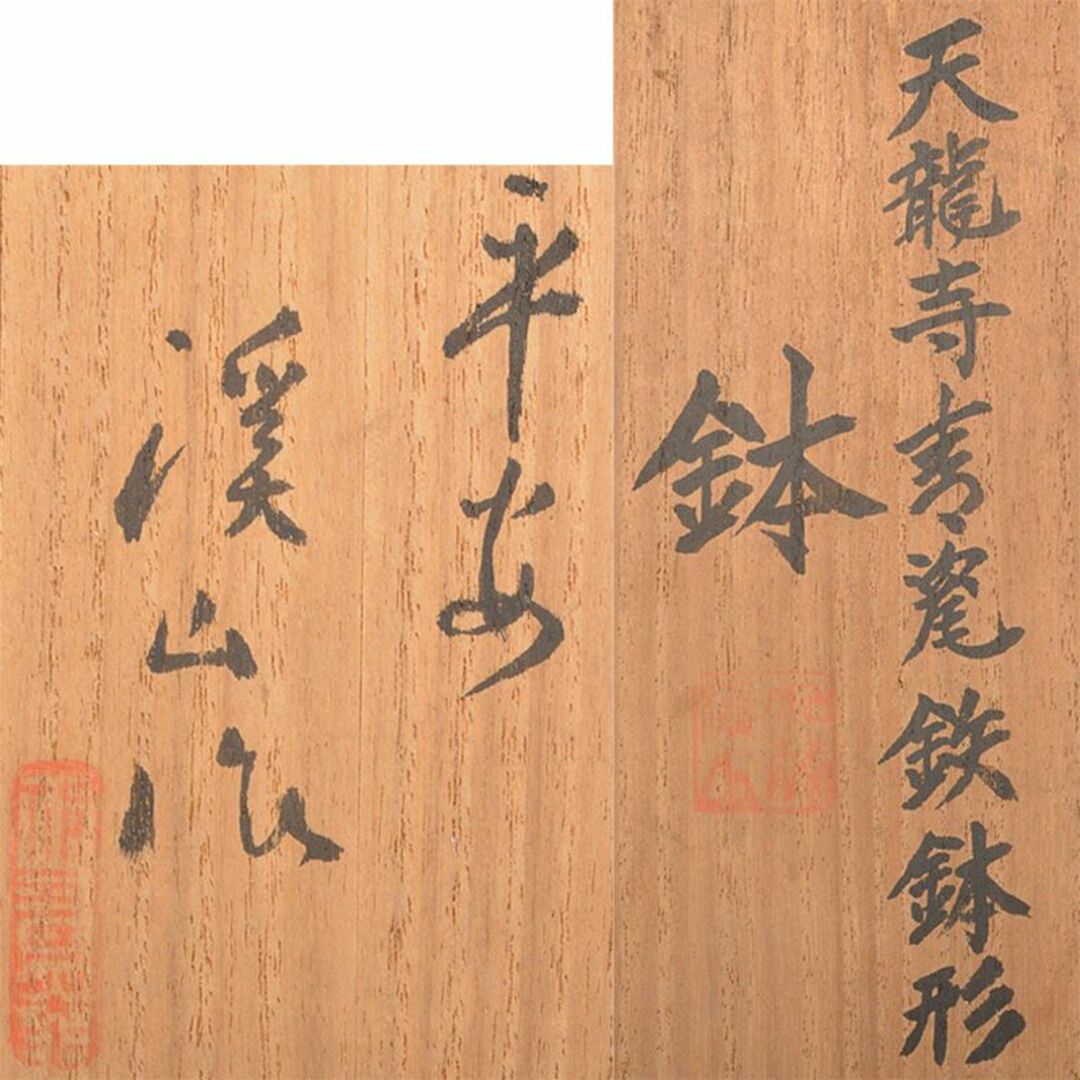 天龍寺青瓷鉄鉢形
鉢
平安
渓山作